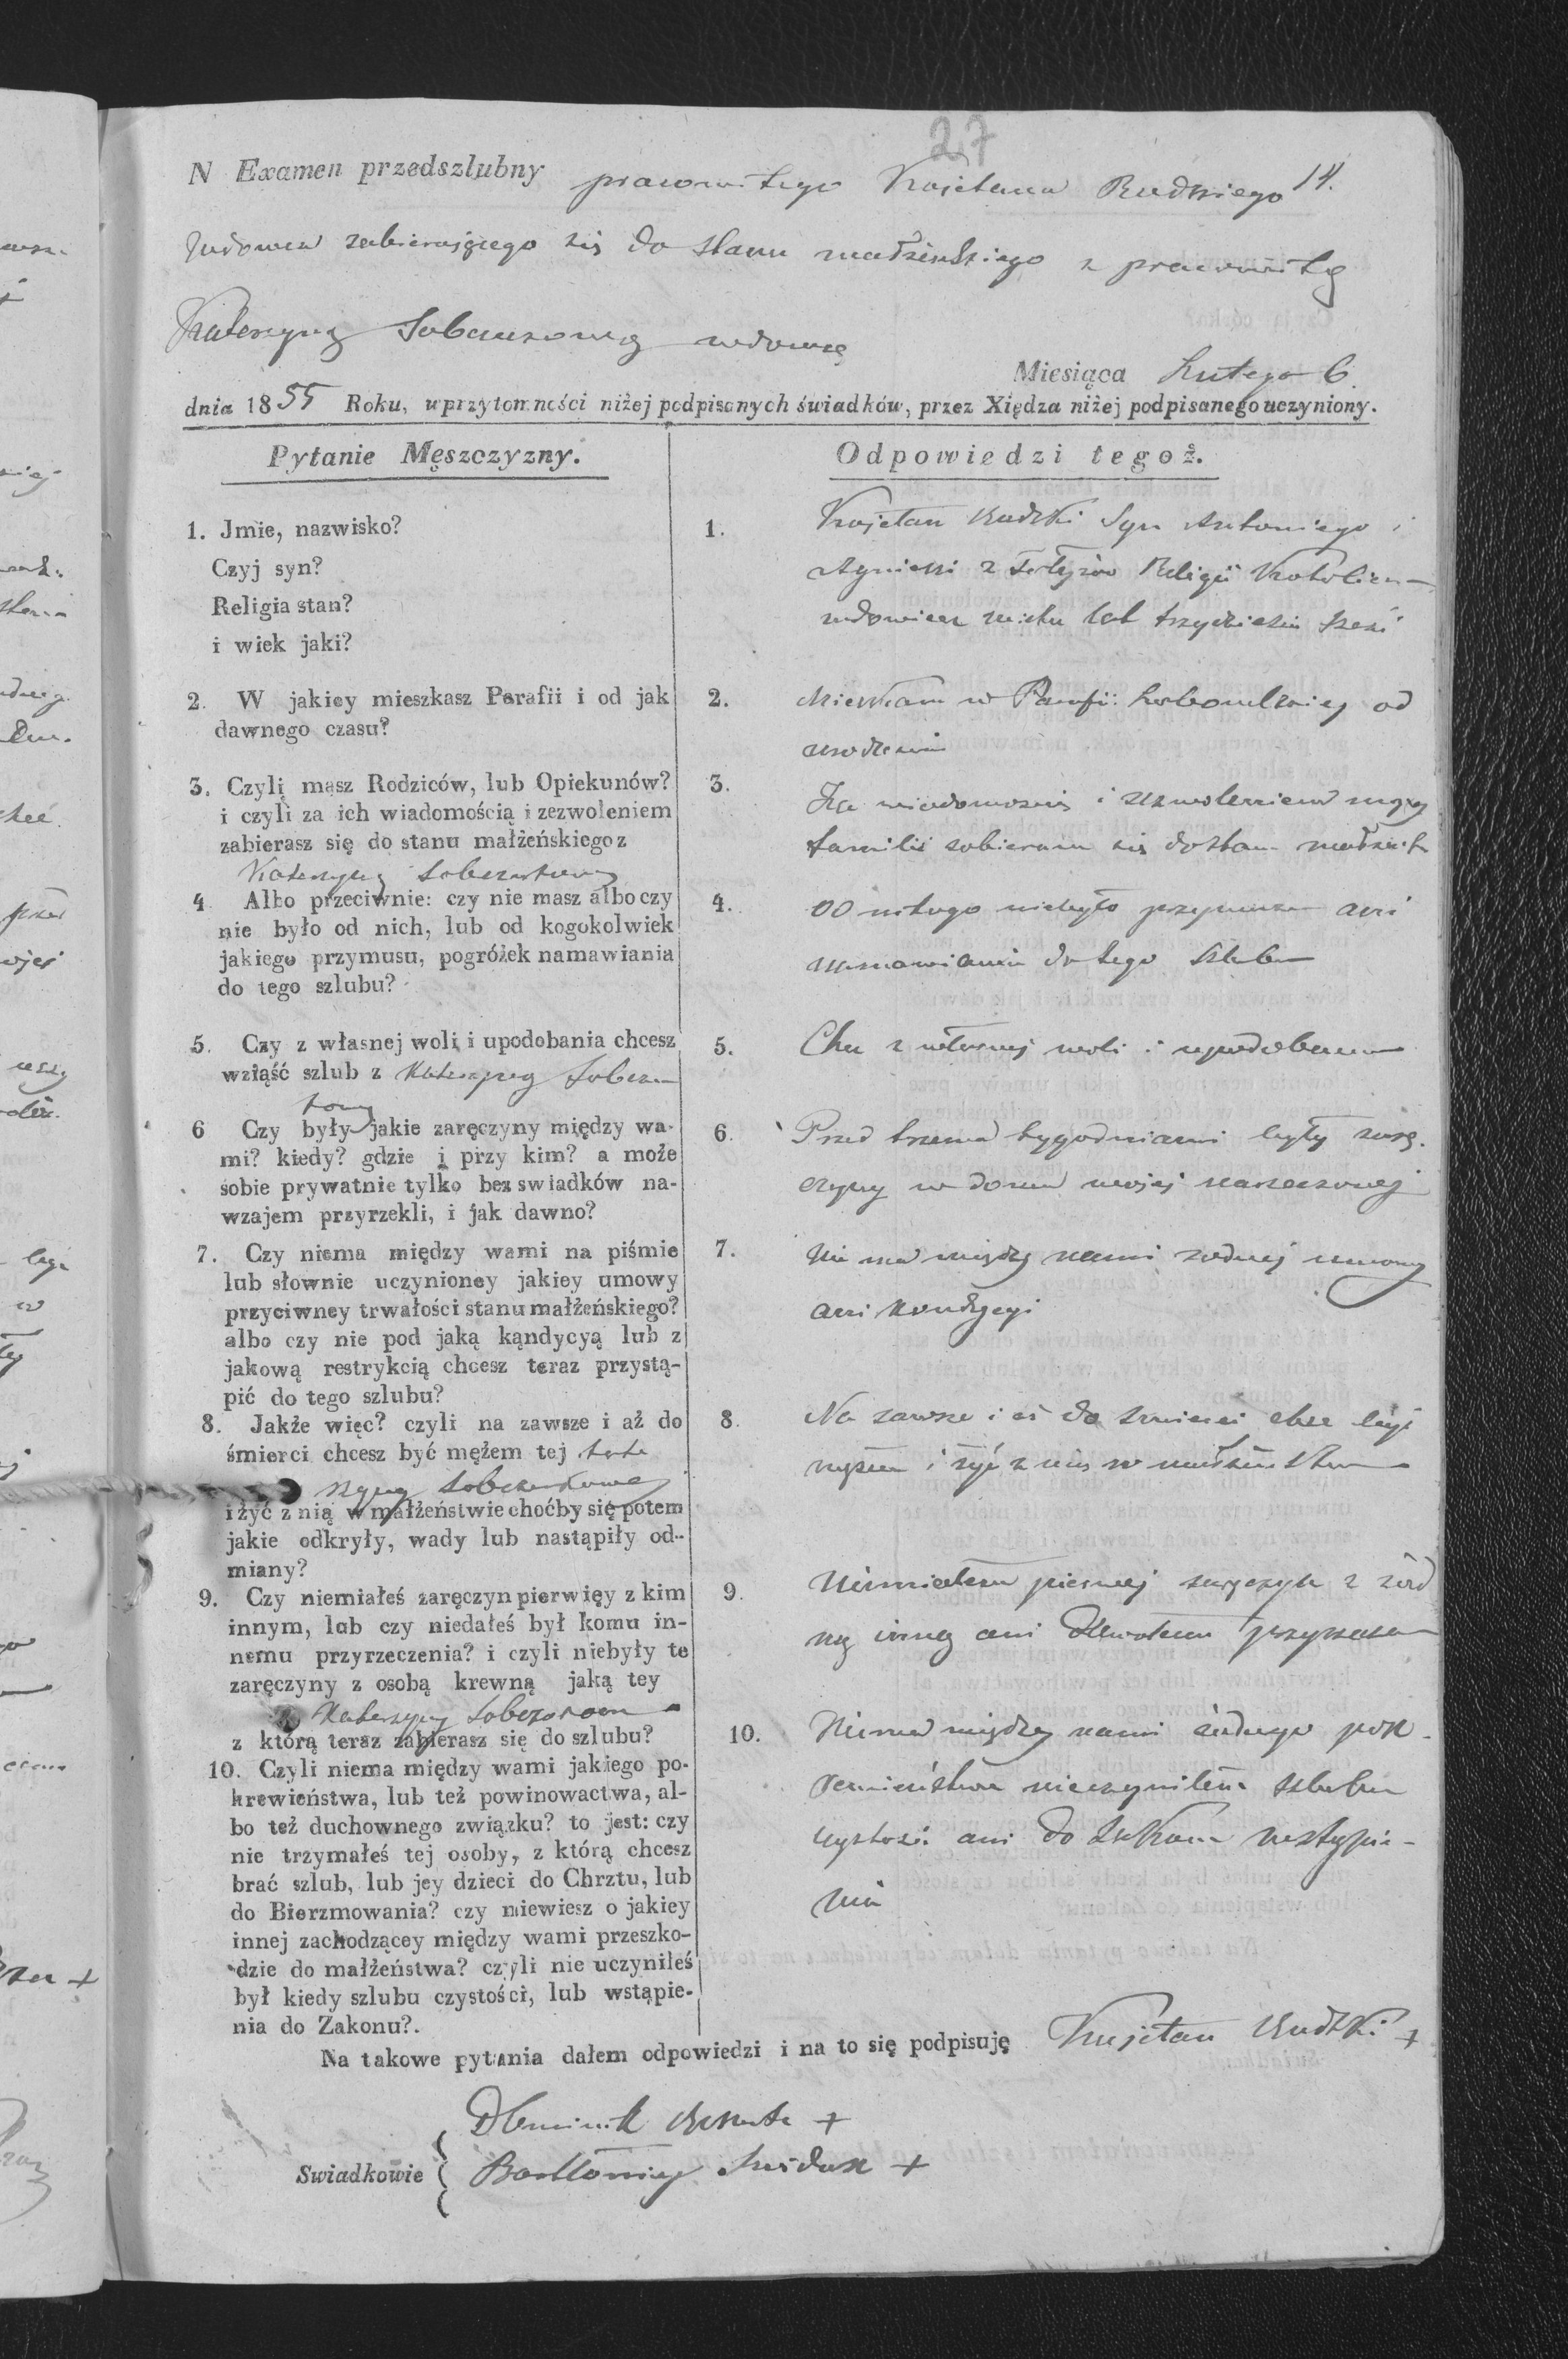 27
N Examen przedszlubny pracowitego Kajetana Rudzkiego 14.
Wdowca zabierającego się do stanu małżeńskiego z pracowitą
Katarzyną wdową
Miesiąca Lutego 6.
dnia 1855 Roku, w przytomności niżej podpisanych świadków, przez Xiędza niżej podpisanego uczyniony.
Pytanie Męszczyzny.
Odpowiedzi tegoż.
1. Jmie, nazwisko?
Czyj syn?
Religia stan?
i wiek jaki?
1. Kajetan Rudzki Syn Antoniego i
Agnieszki z Religii Katolicz-
wdowiec wieku lat trzydzieści sześć
2. W jakiey mieszkasz Parafii i od jak
dawnego czasu?
2. Mieszkam w Parafii od
urodzenia
3. Czylį masz Rodziców, lub Opiekunów?
i czyli za ich wiadomością i zezwoleniem
zabierasz się do stanu małżeńskiego z
Katarzyną
3. Za wiadomością i zezwoleniem mojej
familii zabieram się do stanu małżeń
4. Albo przeciwnie: czy nie masz albo czy
nie było od nich, lub od kogokolwiek
jakiego przymusu, pogróżek namawiania
do tego szlubu?
4. Od nikogo niebyło przymusu ani
namawiania do tego szlubu
5. Czy z własnej woli i upodobania chcesz
wziąść szlub z Katarzyną
5. Chcę z własnej woli i upodobania
6 Czy były jakie zaręczyny między wa-
mi? kiedy? gdzie i przy kim? a może
sobie prywatnie tylko bez swiadków na-
wzajem przyrzekli, i jak dawno?
6. Przed trzema tygodniami były zarę-
czyny w domu mojej narzeczonej
7. Czy niema między wami na piśmie
lub słownie uczynioney jakiey umowy
przyciwney trwałości stanu małżeńskiego?
albo czy nie pod jaką kąndycyą lub z
jakową restrykcią chcesz teraz przystą-
pić do tego szlubu?
7. Nie ma między nami żadnej umowy
ani kondycyi
8. Jakże więc? czyli na zawsze i aż do
śmierci chcesz być mężem tej Kata
rzyny
i żyć z nią w małżeństwie choćby się potem
jakie odkryły, wady lub nastąpiły od-
miany?
8. Na zawsze i aż do śmierci chcę być
mężem i żyć z nią w małżeństwie
9. Czy niemiałeś zaręczyn pierwięy z kim
innym, lub czy niedałeś był komu in-
nemu przyrzeczenia? i czyli niebyły te
zaręczyny z osobą krewną jaką tey
Katarzyny
z którą teraz zabierasz się do szlubu?
9. Niemiałem pierwej zaręczyn z żad
ną inną ani dawałem
10. Czyli niema między wami jakiego po-
krewieństwa, lub też powinowactwa, al-
bo też duchownego związku? to jest: czy
nie trzymałeś tej osoby, z którą chcesz
brać szlub, lub jey dzieci do Chrztu, lub
do Bierzmowania? czy niewiesz o jakiey
innej zachodzącey między wami przeszko-
dzie do małżeństwa? czyli nie uczyniłeś
był kiedy szlubu czystości, lub wstąpie-
nia do Zakonu?.
10. Niema między nami żadnego pok-
rewieństwa nieczyniłem szlubu
czystości ani do Zakonu wstąpie-
nia
Na takowe pytania dałem odpowiedzi i na to się podpisuję Kajetan Rudzki +
Dominik +
Swiadkowie Bartłomiej +